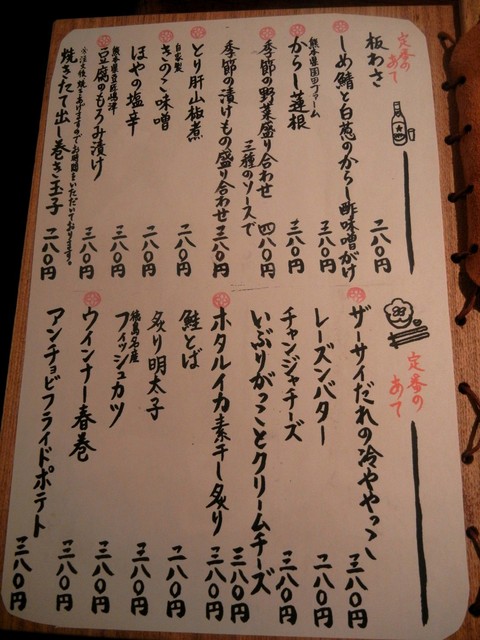 定番の
あて
板わさ 二八〇円
しめ鯖と白葱のからし酢味噌がけ 三八〇円
熊本県園田ファーム
からし蓮根 三八〇円
季節の野菜盛り合わせ 四八〇円
三種のソースで
季節の漬けもの盛り合わせ 三八〇円
とり肝山椒煮 二八〇円
自家製
きのこ味噌 二八〇円
ほやの塩辛 三八〇円
豆腐のもろみ漬け 三八〇円
焼きたて出し巻き玉子 二八〇円
定番の
あて
ザーサイだれの冷ややっこ 三八〇円
レーズンバター 二八〇円
チャンジャチーズ 三八〇円
いぶりがっことクリームチーズ 三八〇円
ホタルイカ素干し炙り 三八〇円
鮭とば 二八〇円
炙り明太子 三八〇円
徳島名産
フィッシュカツ 三八〇円
ウインナー春巻 三八〇円
アンチョビフライドポテト 三八〇円